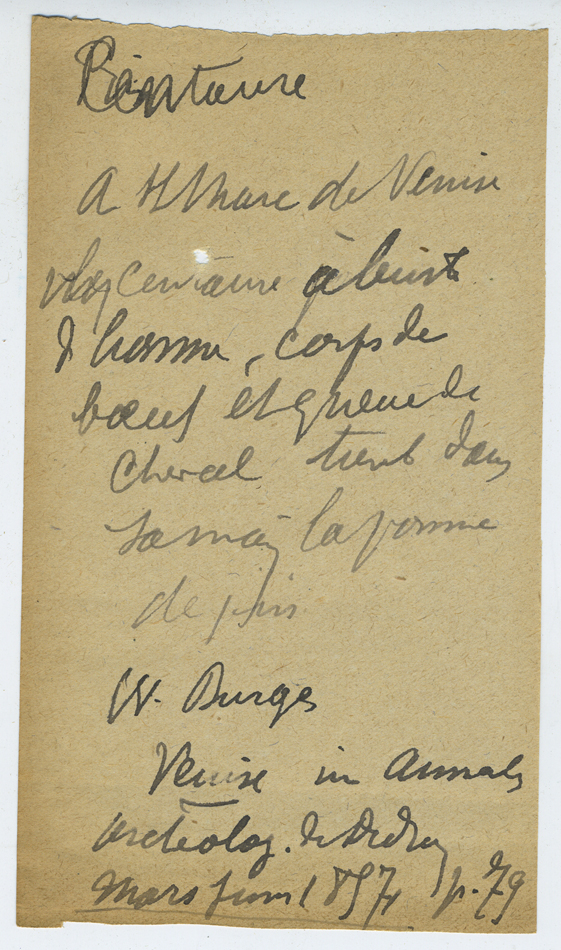 Centaure
A St Marc de Venise
centaure à buste
d'homme, corps de
boeuf et queue de
cheval tient dans
sa main la pomme
de pin
W. Burges
Venise in Annales
archéolog. de Didron
Mars Juin 1857, p. 79